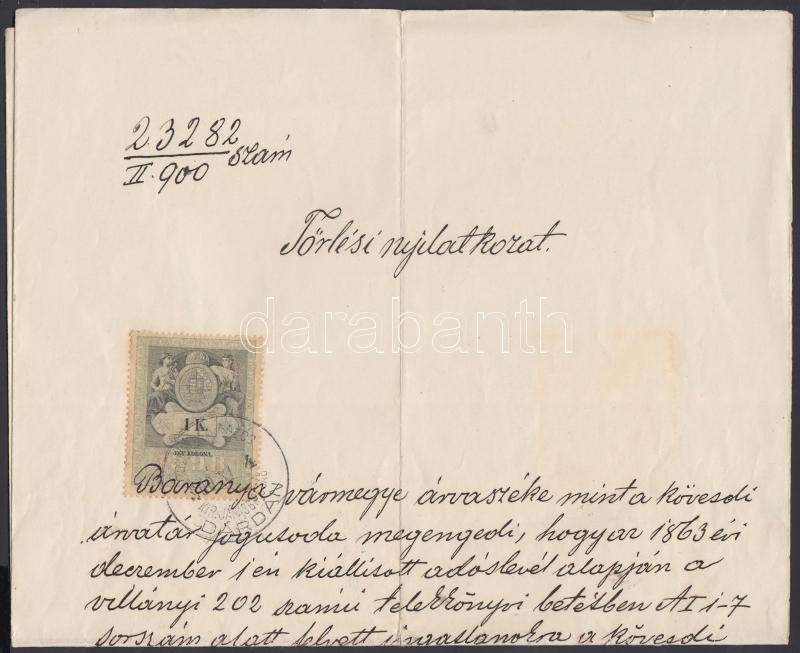 23282
II. 900 szám
Törlési nyilatkozat.
darabanth
1 K.
EGY KORONA
DÁRDA
Baranya vármegye árvaszéke mint a kövesdi
árvatár jogutoda megengedi, hogy az 1863 évi
december 1 én kiállitott adóslevél alapján a
villányi 202 számú telekkönyvi betétben A I 1-7
sorszám alatt felvett ingatlanokra a kövesdi